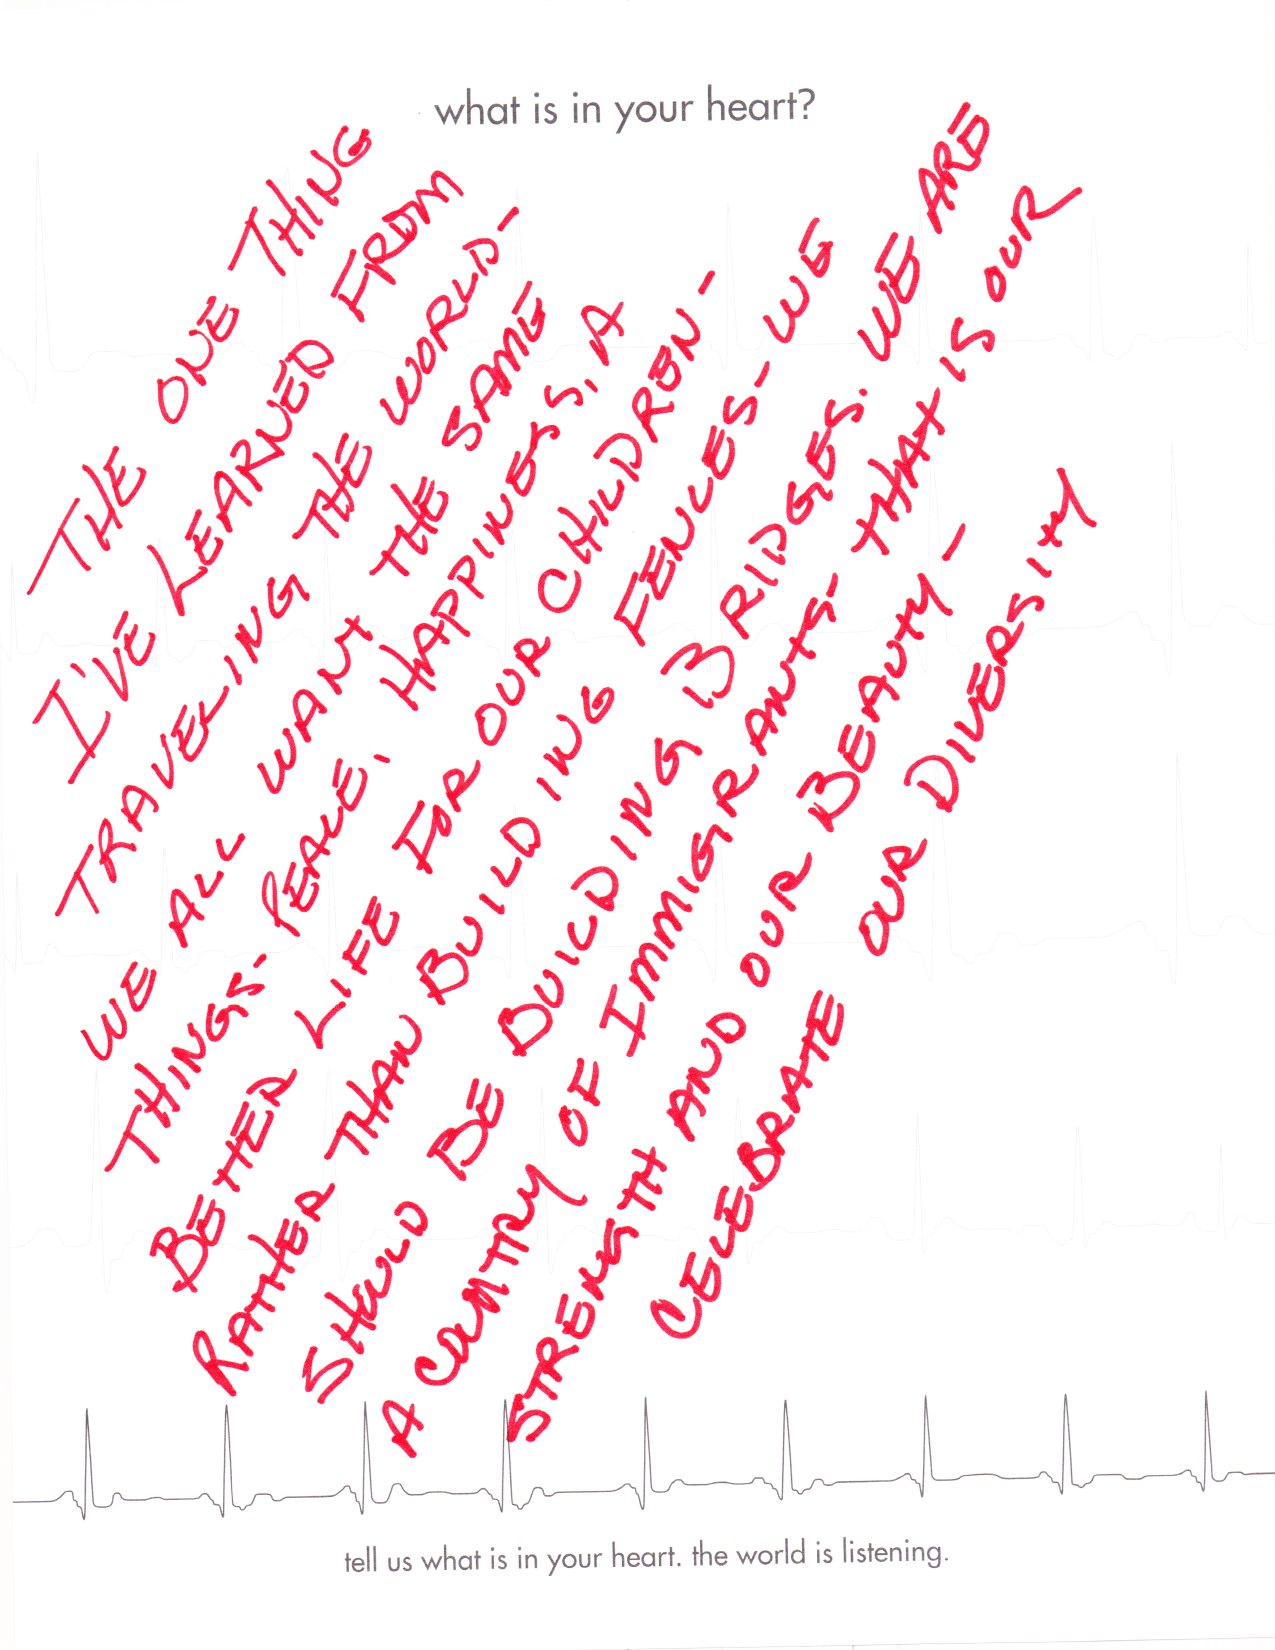 what is in your heart?
THE ONE THING
I'VE LEARNED FROM
TRAVELING THE WORLD-
WE ALL WANT THE SAME
THINGS- PEACE, HAPPINESS, A
BETTER LIFE FOR OUR CHILDREN-
RATHER THAN BUILDING FENCES- WE
SHOULD BE BUILDING BRIDGES. WE ARE
A COUNTRY OF IMMIGRANTS- THAT IS OUR
STRENGTH AND OUR BEAUTY-
CELEBRATE OUR DIVERSITY
tell us what is in your heart. the world is listening.